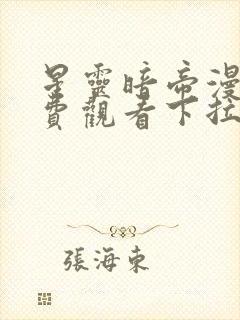 星靈暗帝漫
費觀看下拉
張海東